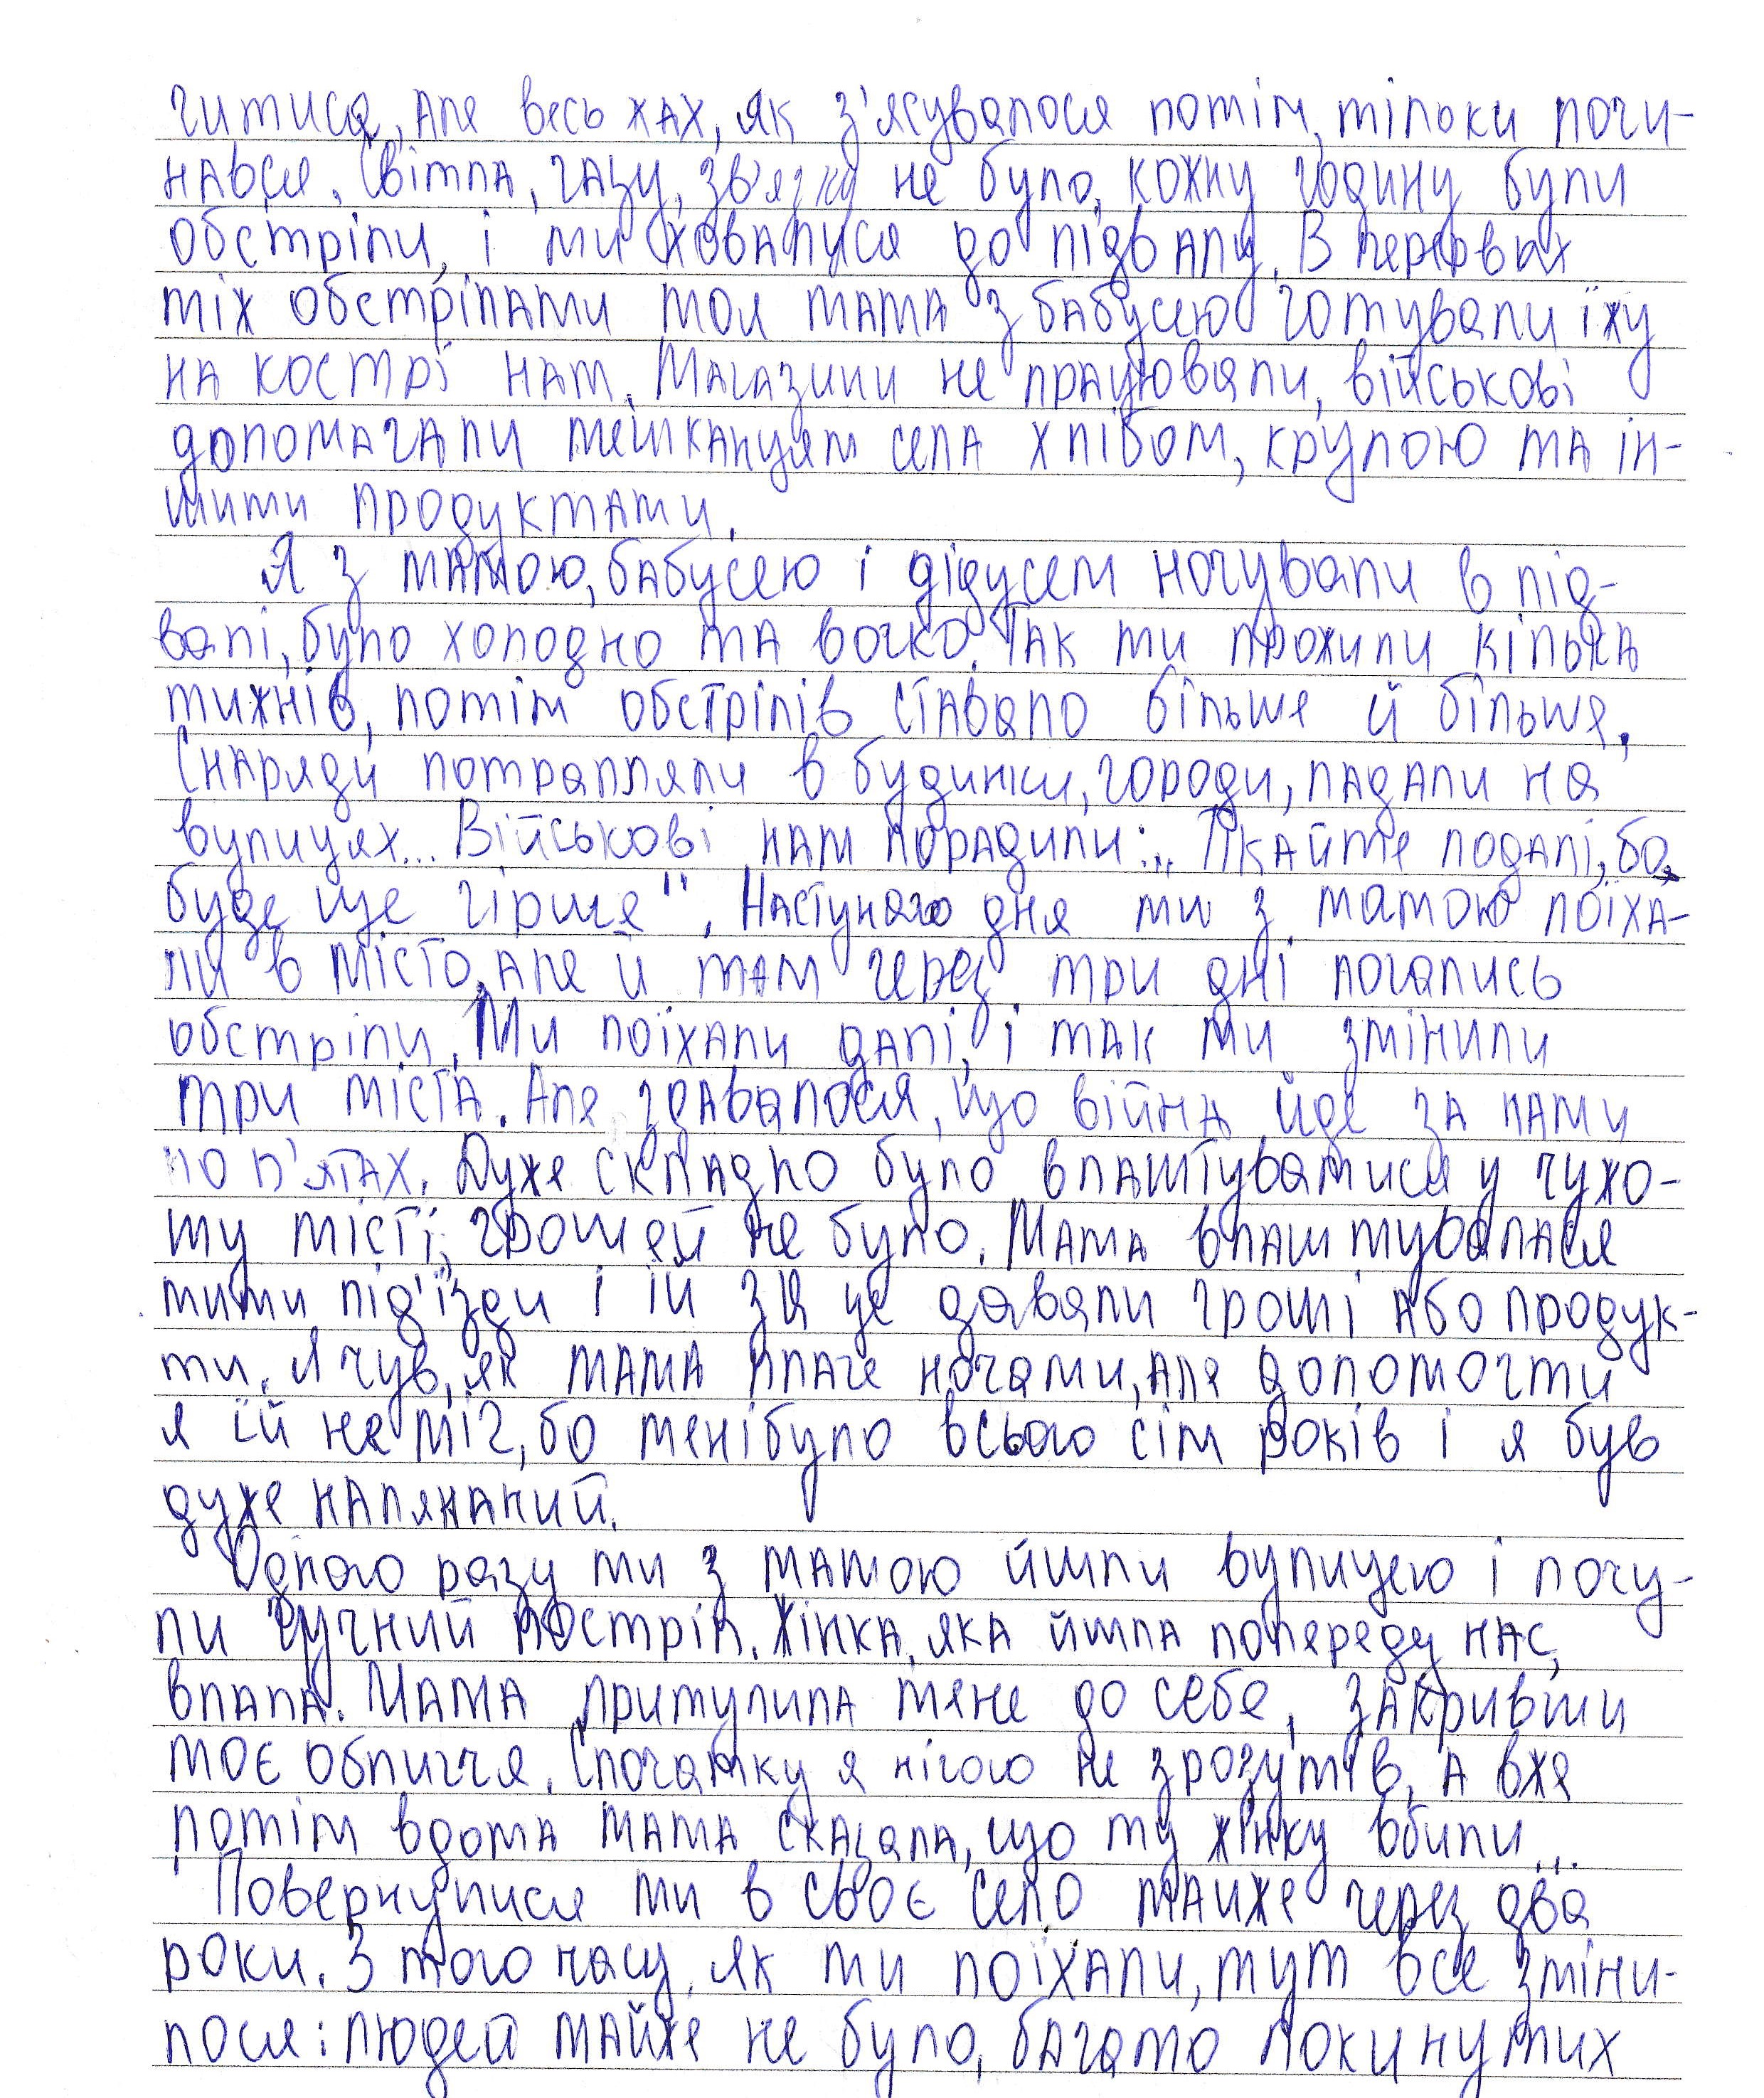 читися, але весь жах, як з'ясувалося потім, тільки почи-
нався. Світла, газу, зв'язку не було, кожну годину були
обстріли, і ми ховалися до підвалу. В перервах
між обстрілами моя мама з бабусею готували їжу
на кострі нам. Магазини не працювали, військові
допомагали мешканцям села хлібом, крупою та ін-
шими продуктами.
Я з мамою, бабусею і дідусем ночували в під-
валі, було холодно та вогко. Так ми прожили кілька
тижнів, потім обстрілів ставало більше й більше.
Снаряди потрапляли в будинки, городи, падали на
вулицях... Військові нам порадили: „Тікайте подалі, бо
буде ще гірше". Наступного дня ми з мамою поїха-
ли в місто, але й там через три дні почались
обстріли. Ми поїхали далі, і так ми змінили
три міста. Але здавалося, що війна йде за нами
по п'ятах. Дуже складно було влаштуватися у чужо-
му місті, грошей не було. Мама влаштувалася
мити під'їзди і їй за це давали гроші або продук-
ти. Я чув, як мама плаче ночами, але допомогти
я їй не міг, бо мені було всього сім років і я був
дуже наляканий.
Одного разу ми з мамою йшли вулицею і почу-
ли гучний постріл. Жінка, яка йшла попереду нас,
впала. Мама притулила мене до себе, закривши
моє обличчя. Спочатку я нічого не зрозумів, а вже
потім вдома мама сказала, що ту жінку вбили...
Повернулися ми в своє село майже через два
роки. З того часу, як ми поїхали, тут все зміни-
лося: людей майже не було, багато покинутих